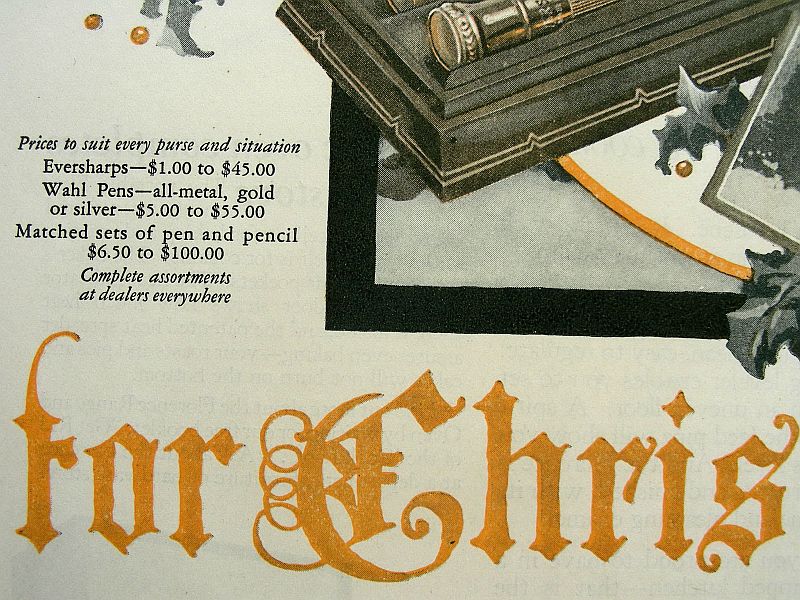 Prices to suit every purse and situation
Eversharps—$1.00 to $45.00
Wahl Pens—all-metal, gold
or silver—$5.00 to $55.00
Matched sets of pen and pencil
$6.50 to $100.00
Complete assortments
at dealers everywhere
for Chris